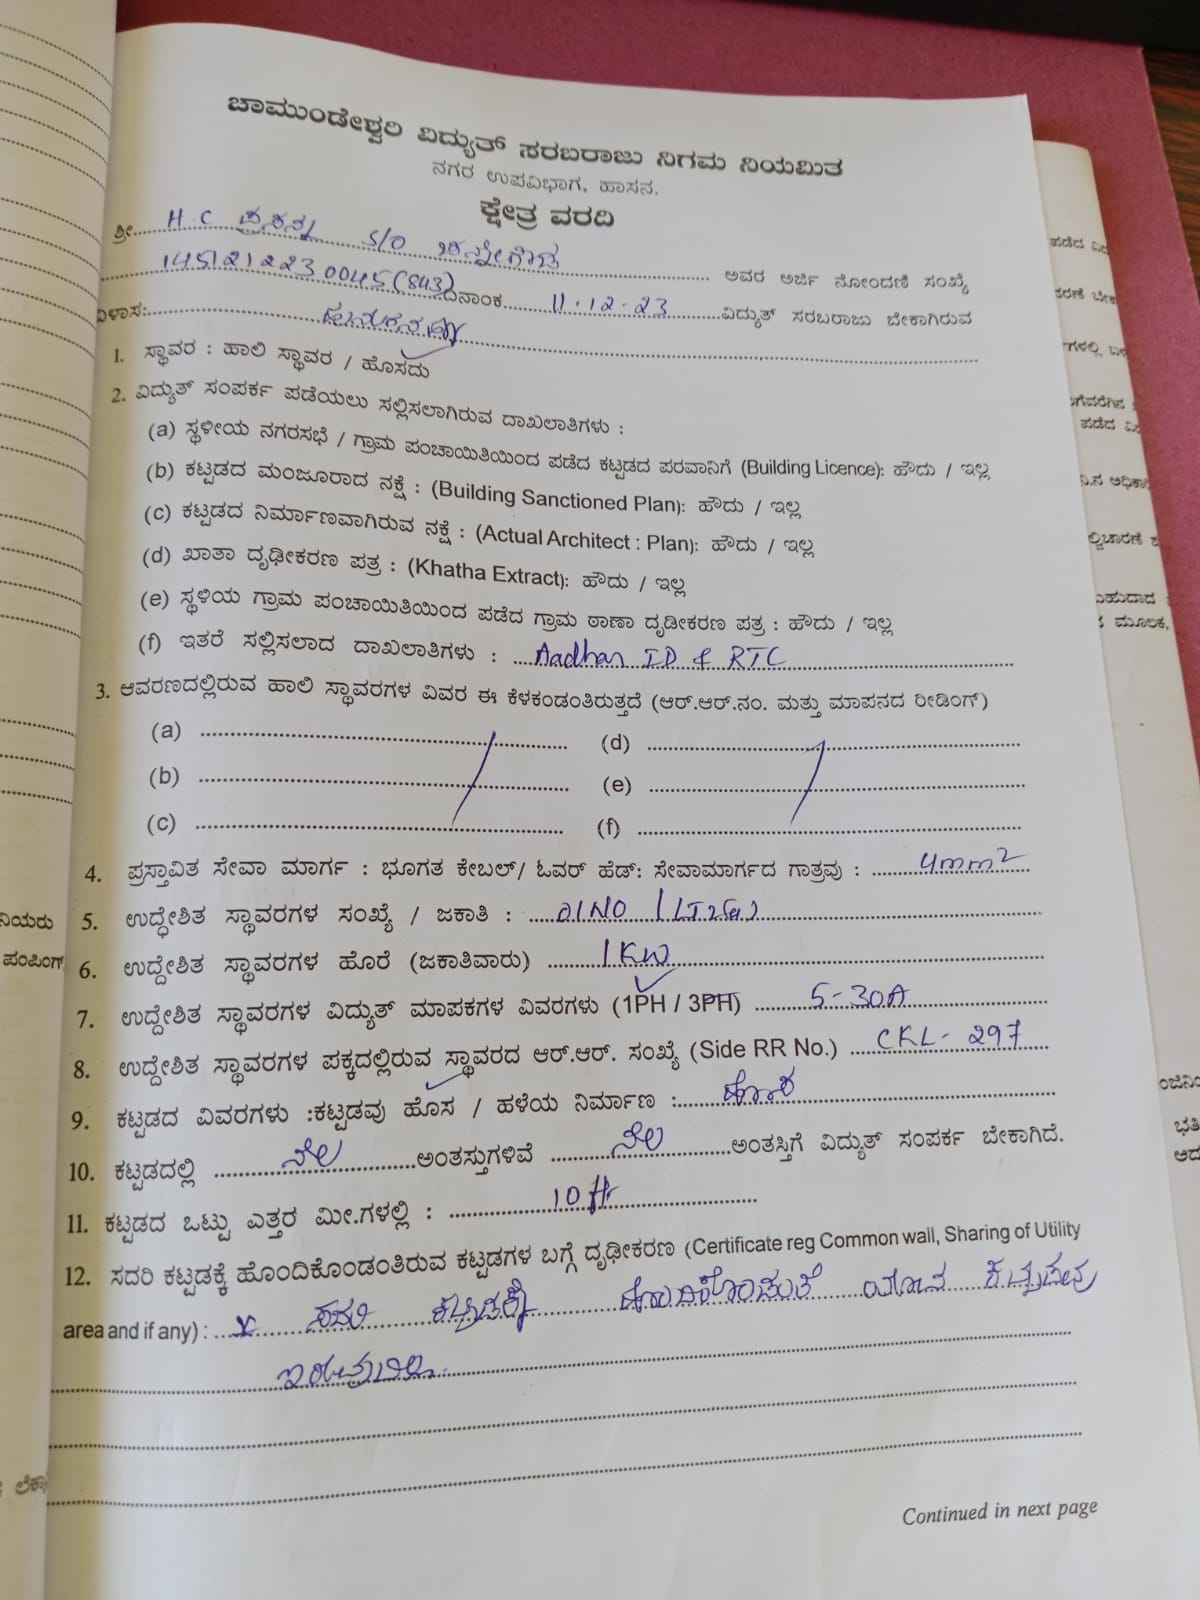 ಚಾಮುಂಡೇಶ್ವರಿ ವಿದ್ಯುತ್ ಸರಬರಾಜು ನಿಗಮ ನಿಯಮಿತ
ನಗರ ಉಪವಿಭಾಗ, ಹಾಸನ.
ಕ್ಷೇತ್ರ ವರದಿ
ಶ್ರೀ H.C ಪ್ರಸನ್ನ S/O
14512122230045(843) ದಿನಾಂಕ 11-12-23 ಅವರ ಅರ್ಜಿ ನೋಂದಣಿ ಸಂಖ್ಯೆ
ವಿದ್ಯುತ್ ಸರಬರಾಜು ಬೇಕಾಗಿರುವ
1. ಸ್ಥಾವರ : ಹಾಲಿ ಸ್ಥಾವರ / ಹೊಸದು
2. ವಿದ್ಯುತ್ ಸಂಪರ್ಕ ಪಡೆಯಲು ಸಲ್ಲಿಸಲಾಗಿರುವ ದಾಖಲಾತಿಗಳು :
(a) ಸ್ಥಳೀಯ ನಗರಸಭೆ / ಗ್ರಾಮ ಪಂಚಾಯಿತಿಯಿಂದ ಪಡೆದ ಕಟ್ಟಡದ ಪರವಾನಿಗೆ (Building Licence): ಹೌದು / ಇಲ್ಲ
(b) ಕಟ್ಟಡದ ಮಂಜೂರಾದ ನಕ್ಷೆ : (Building Sanctioned Plan): ಹೌದು / ಇಲ್ಲ
(c) ಕಟ್ಟಡದ ನಿರ್ಮಾಣವಾಗಿರುವ ನಕ್ಷೆ : (Actual Architect : Plan): ಹೌದು / ಇಲ್ಲ
(d) ಖಾತಾ ದೃಢೀಕರಣ ಪತ್ರ : (Khatha Extract): ಹೌದು / ಇಲ್ಲ
(e) ಸ್ಥಳಿಯ ಗ್ರಾಮ ಪಂಚಾಯಿತಿಯಿಂದ ಪಡೆದ ಗ್ರಾಮ ಠಾಣಾ ದೃಡೀಕರಣ ಪತ್ರ : ಹೌದು / ಇಲ್ಲ
(f) ಇತರೆ ಸಲ್ಲಿಸಲಾದ ದಾಖಲಾತಿಗಳು : Aadhar ID & RTC
3. ಆವರಣದಲ್ಲಿರುವ ಹಾಲಿ ಸ್ಥಾವರಗಳ ವಿವರ ಈ ಕೆಳಕಂಡಂತಿರುತ್ತದೆ (ಆರ್.ಆರ್.ನಂ. ಮತ್ತು ಮಾಪನದ ರೀಡಿಂಗ್)
(a) (d)
(b) (e)
(c) (f)
4. ಪ್ರಸ್ತಾವಿತ ಸೇವಾ ಮಾರ್ಗ : ಭೂಗತ ಕೇಬಲ್/ ಓವರ್ ಹೆಡ್: ಸೇವಾಮಾರ್ಗದ ಗಾತ್ರವು : 4mm²
5. ಉದ್ಧೇಶಿತ ಸ್ಥಾವರಗಳ ಸಂಖ್ಯೆ / ಜಕಾತಿ : 01NO
6. ಉದ್ದೇಶಿತ ಸ್ಥಾವರಗಳ ಹೊರೆ (ಜಕಾತಿವಾರು) 1KW
7. ಉದ್ದೇಶಿತ ಸ್ಥಾವರಗಳ ವಿದ್ಯುತ್ ಮಾಪಕಗಳ ವಿವರಗಳು (1PH / 3PH) 5-30A
8. ಉದ್ದೇಶಿತ ಸ್ಥಾವರಗಳ ಪಕ್ಕದಲ್ಲಿರುವ ಸ್ಥಾವರದ ಆರ್.ಆರ್. ಸಂಖ್ಯೆ (Side RR No.) CKL-297
9. ಕಟ್ಟಡದ ವಿವರಗಳು :ಕಟ್ಟಡವು ಹೊಸ / ಹಳೆಯ ನಿರ್ಮಾಣ : ಹೊಸ
10. ಕಟ್ಟಡದಲ್ಲಿ ನೆಲ ಅಂತಸ್ತುಗಳಿವೆ ನೆಲ ಅಂತಸ್ತಿಗೆ ವಿದ್ಯುತ್ ಸಂಪರ್ಕ ಬೇಕಾಗಿದೆ.
11. ಕಟ್ಟಡದ ಒಟ್ಟು ಎತ್ತರ ಮೀ.ಗಳಲ್ಲಿ : 10 ft
12. ಸದರಿ ಕಟ್ಟಡಕ್ಕೆ ಹೊಂದಿಕೊಂಡಂತಿರುವ ಕಟ್ಟಡಗಳ ಬಗ್ಗೆ ದೃಢೀಕರಣ (Certificate reg Common wall, Sharing of Utility
area and if any) : ಸದರಿ ಕಟ್ಟಡಕ್ಕೆ ಹೊಂದಿಕೊಂಡಂತೆ ಯಾವ ಕಟ್ಟಡವು
ಇರುವುದಿಲ್ಲ.
Continued in next page